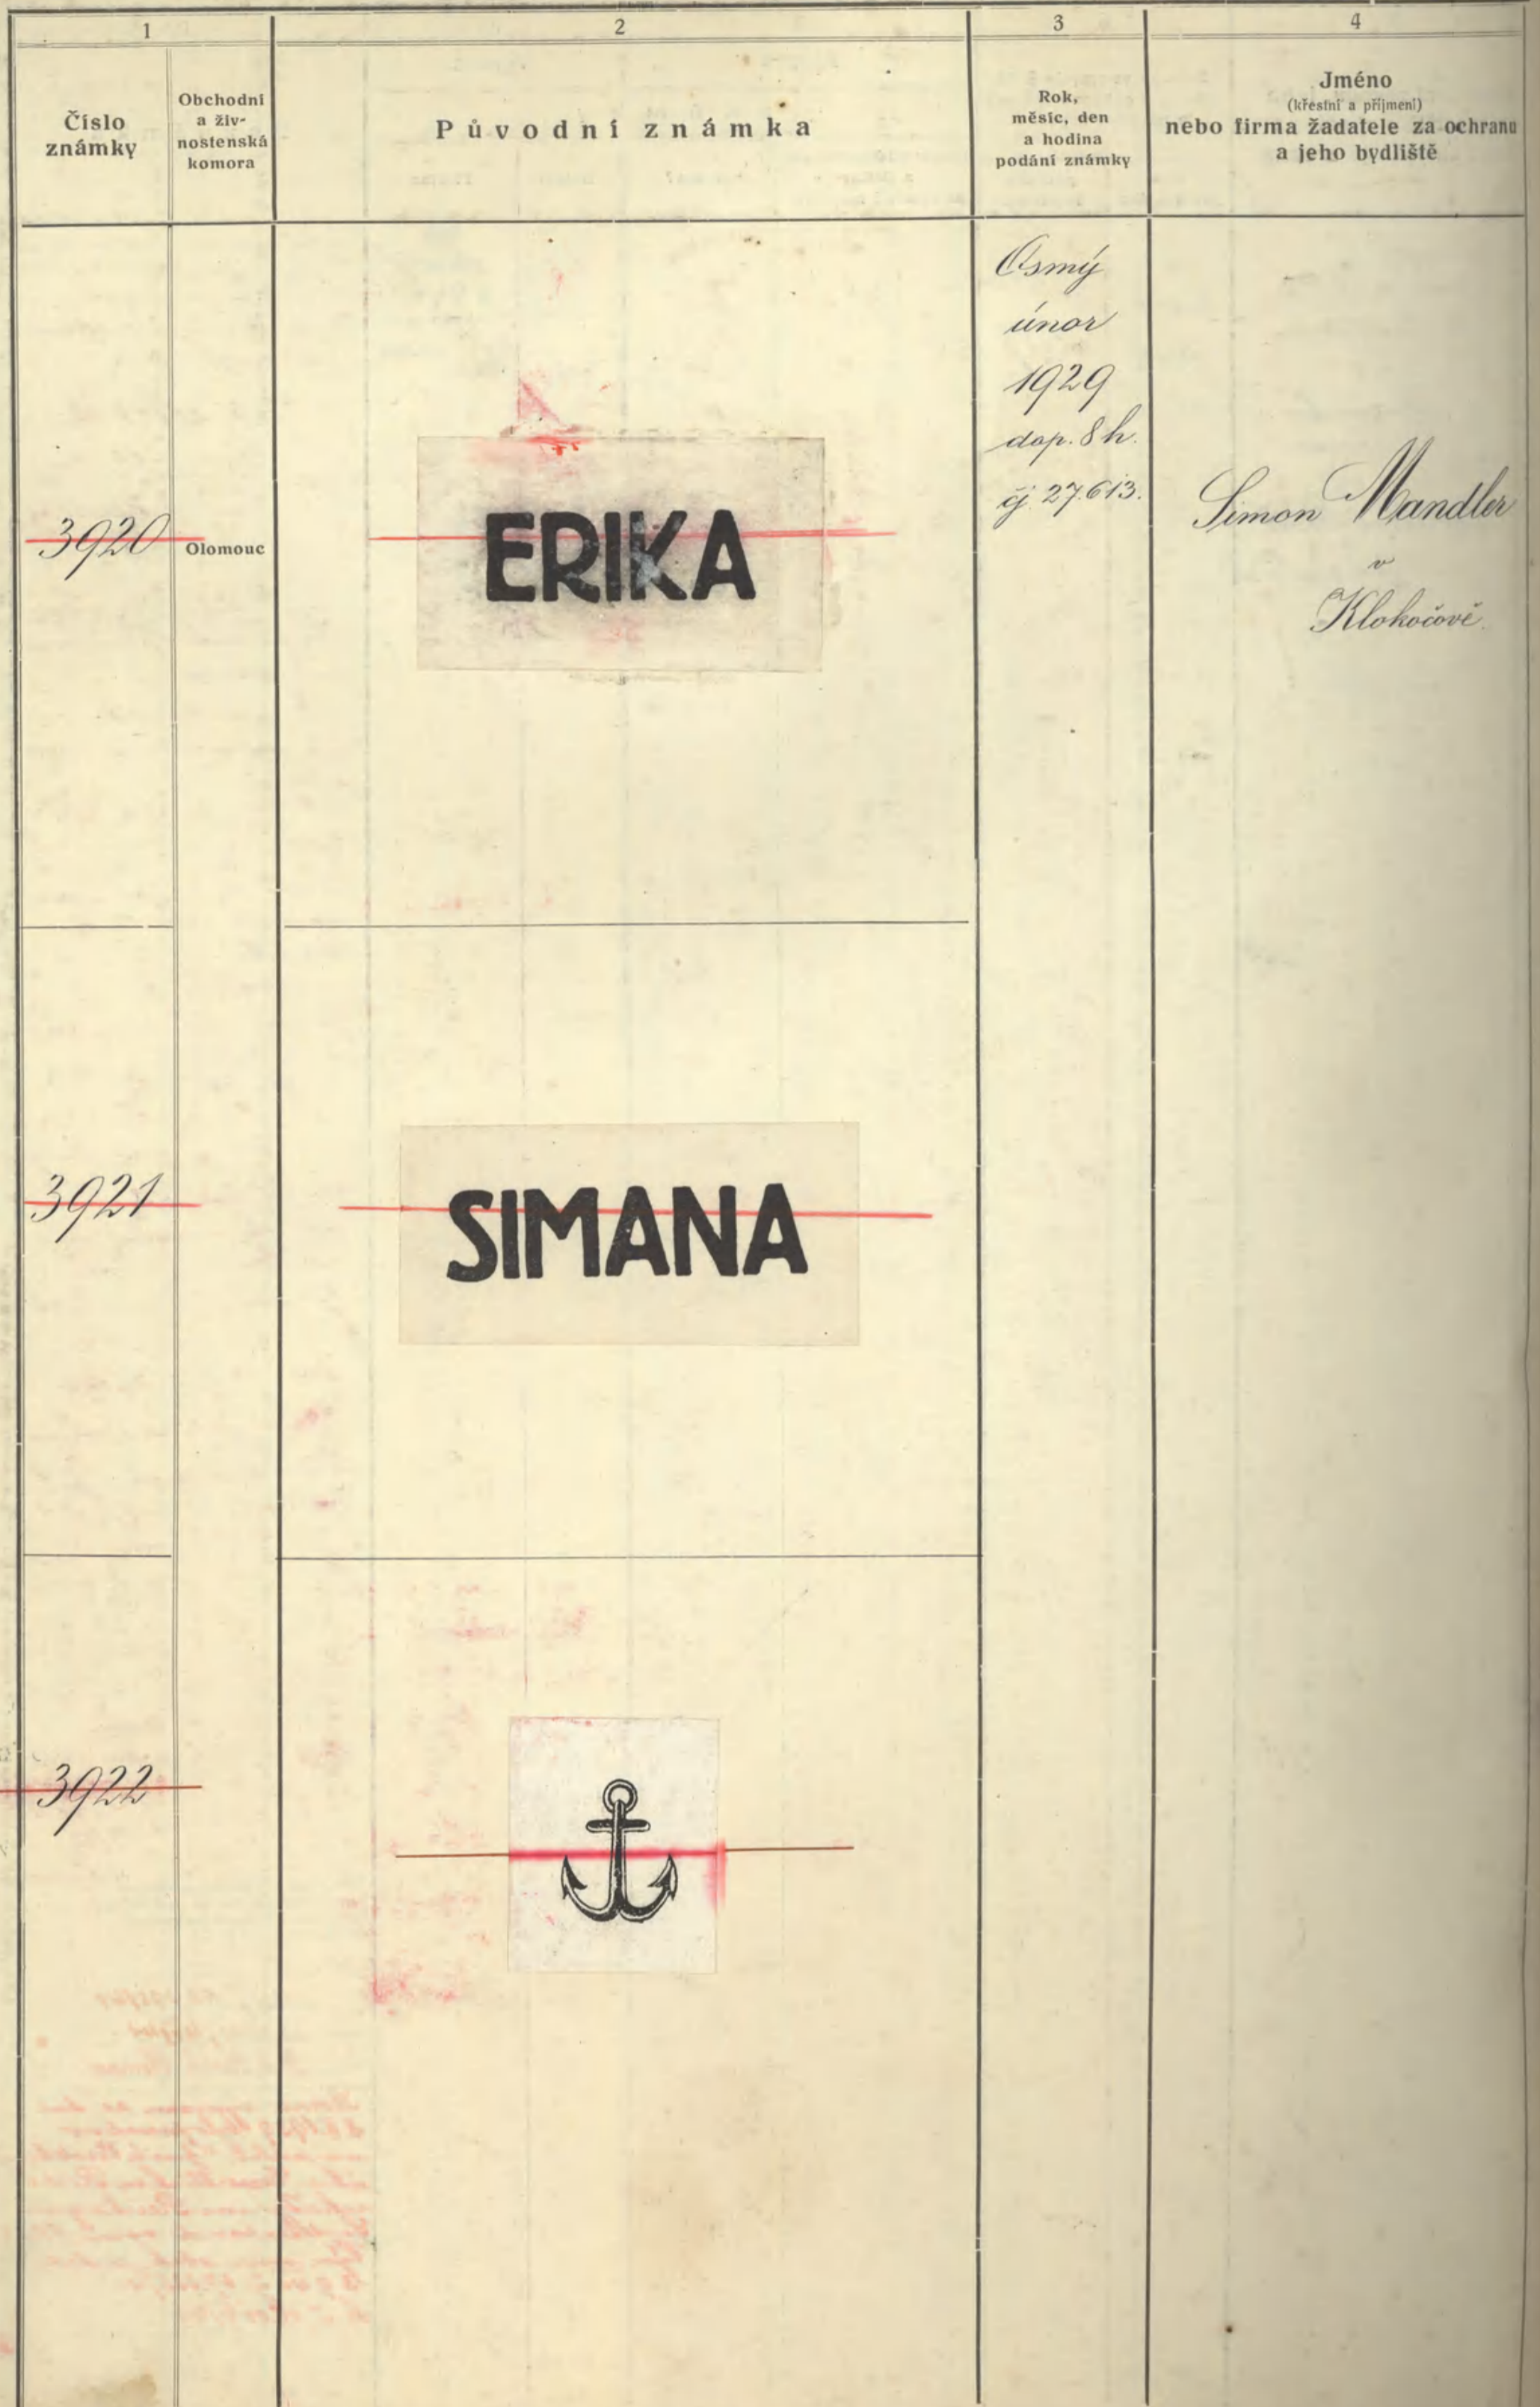 1
2
3
4
Číslo
známky
Obchodní
a živ-
nostenská
komora
Původní známka
Rok,
měsíc, den
a hodina
podání známky
Jméno
(křestní a příjmení)
nebo firma žadatele za ochranu
a jeho bydliště
3920
Olomouc
ERIKA
Osmý
únor
1929
dop. 8 h.
čj. 27.613.
Simon Mandler
v
Klokočově.
3921
SIMANA
3922